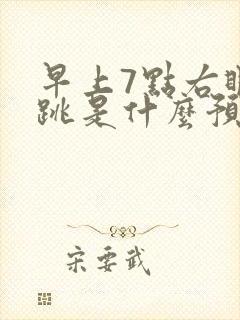 早上7點右眼
跳是什麼預
宋要武